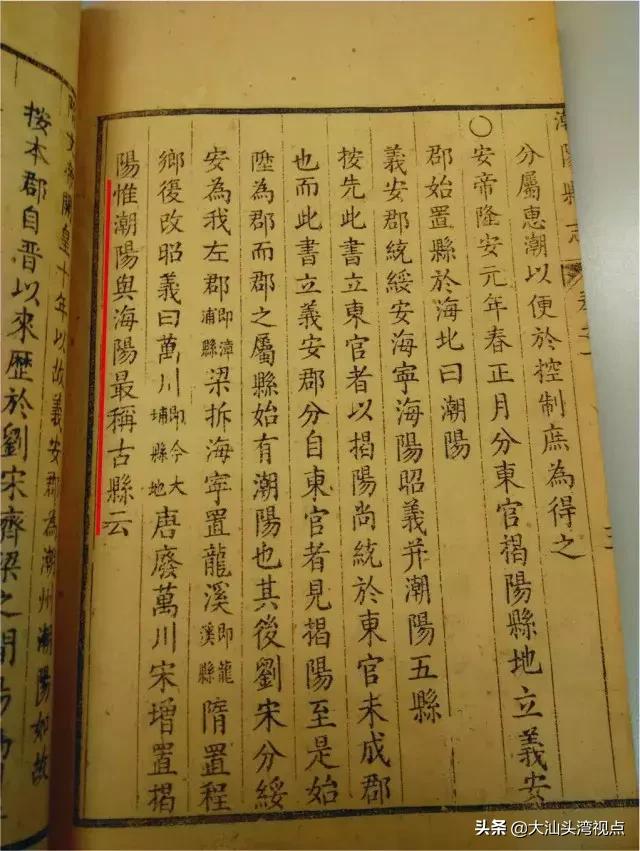 分屬惠潮以便於控制庶為得之
○安帝隆安元年春正月分東官揭陽縣地立義安
郡始置縣於海北曰潮陽
義安郡統綏安海寧海陽昭義并潮陽五縣
按先此書立東官者以揭陽尚統於東官未成郡
也而此書立義安郡分自東官者見揭陽至是始
陞為郡而郡之屬縣始有潮陽也其後劉宋分綏
安為我左郡即漳浦縣梁拆海寧置龍溪即龍溪縣隋置程
鄉後改昭義曰萬川即今大埔縣地唐廢萬川宋增置揭
陽惟潮陽與海陽最稱古縣云
開皇十年以故義安郡為潮州潮陽如故
按本郡自晉以來歷於劉宋齊梁之間
潮陽縣志
頭条 @大汕头湾视点